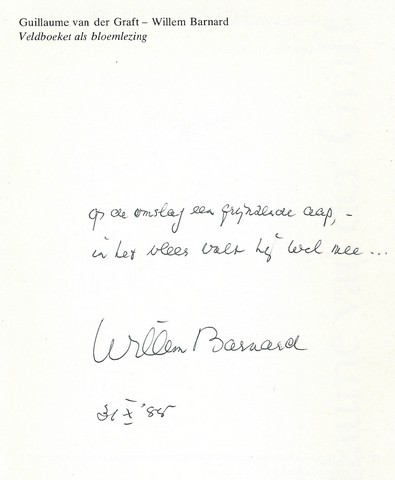 Guillaume van der Graft – Willem Barnard
Veldboeket als bloemlezing
op de omslag een grijnzende aap, –
in het vlees valt hij wel mee...
Willem Barnard
31 X '85